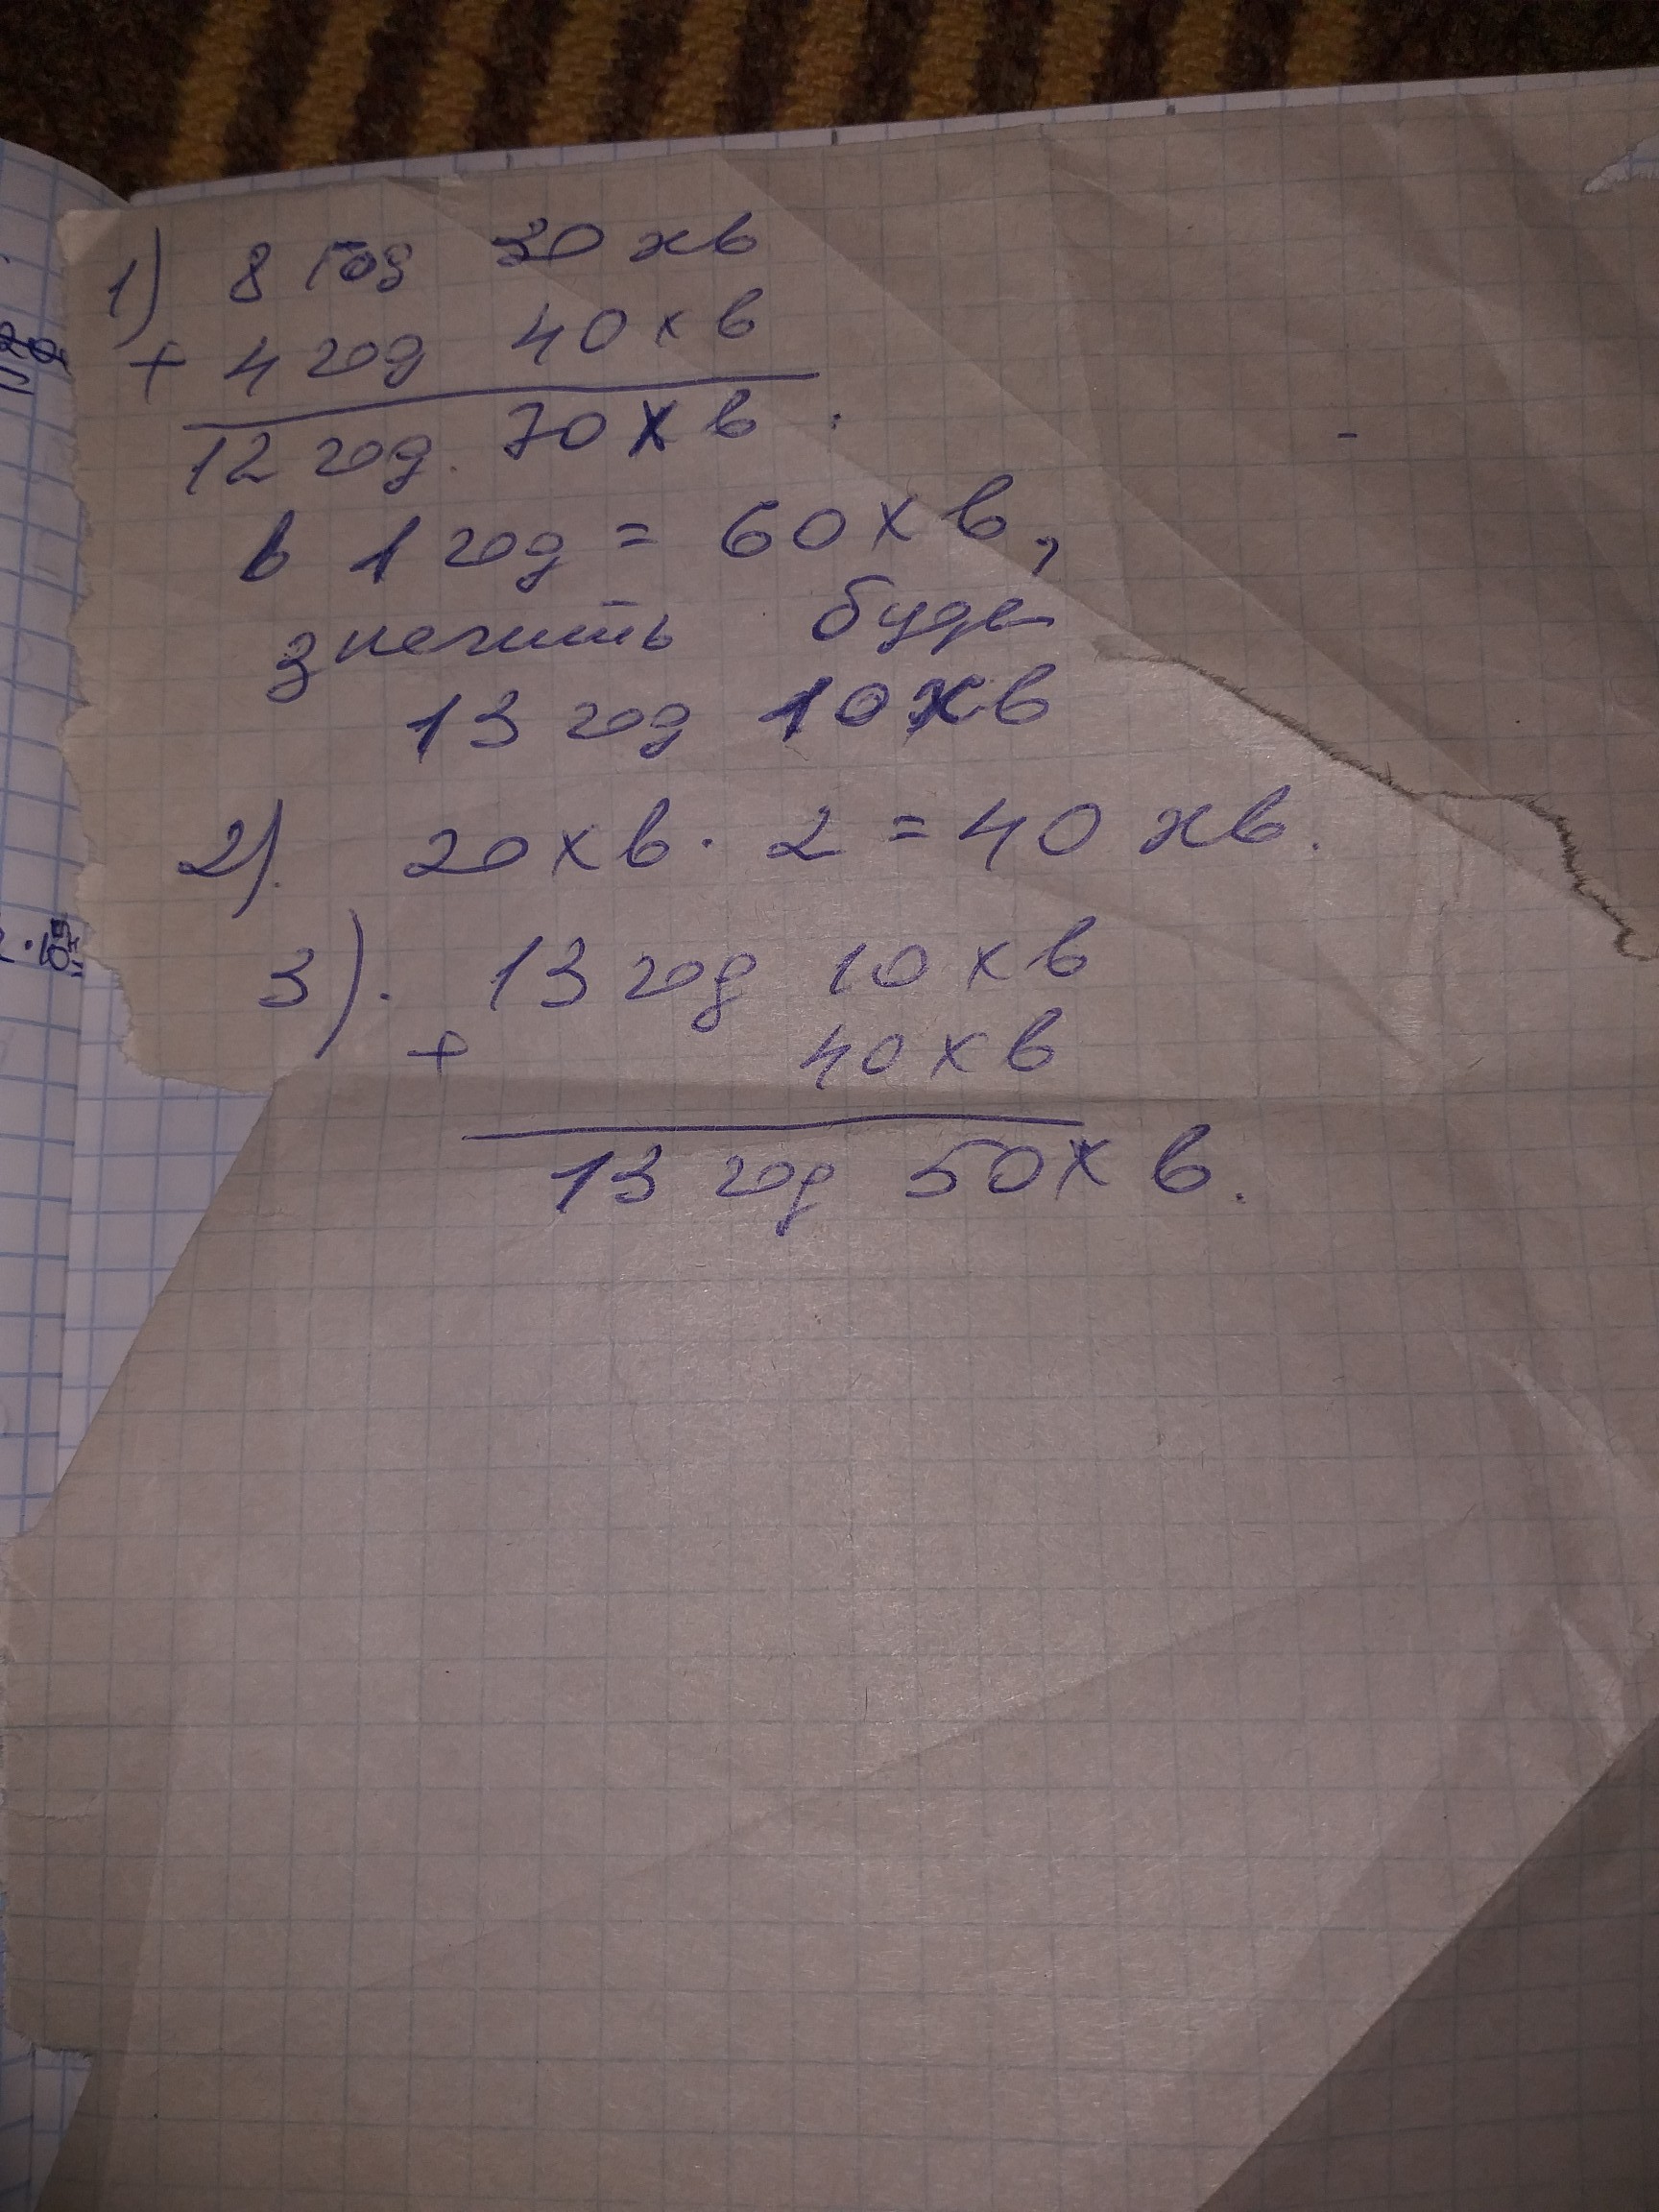 1) 8 год 30 хв
+ 4 год 40 хв
12 год. 70 хв.
в 1 год = 60 хв,
значить буде
13 год 10 хв
2). 20 хв · 2 = 40 хв.
3). 13 год 10 хв
+ 40 хв
13 год 50 хв.